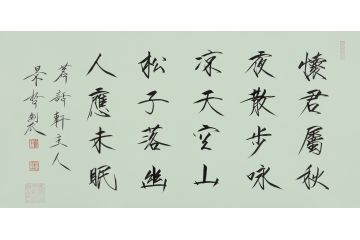 懷君屬秋
夜散步詠
凉天空山
松子落幽
人應未眠
主人